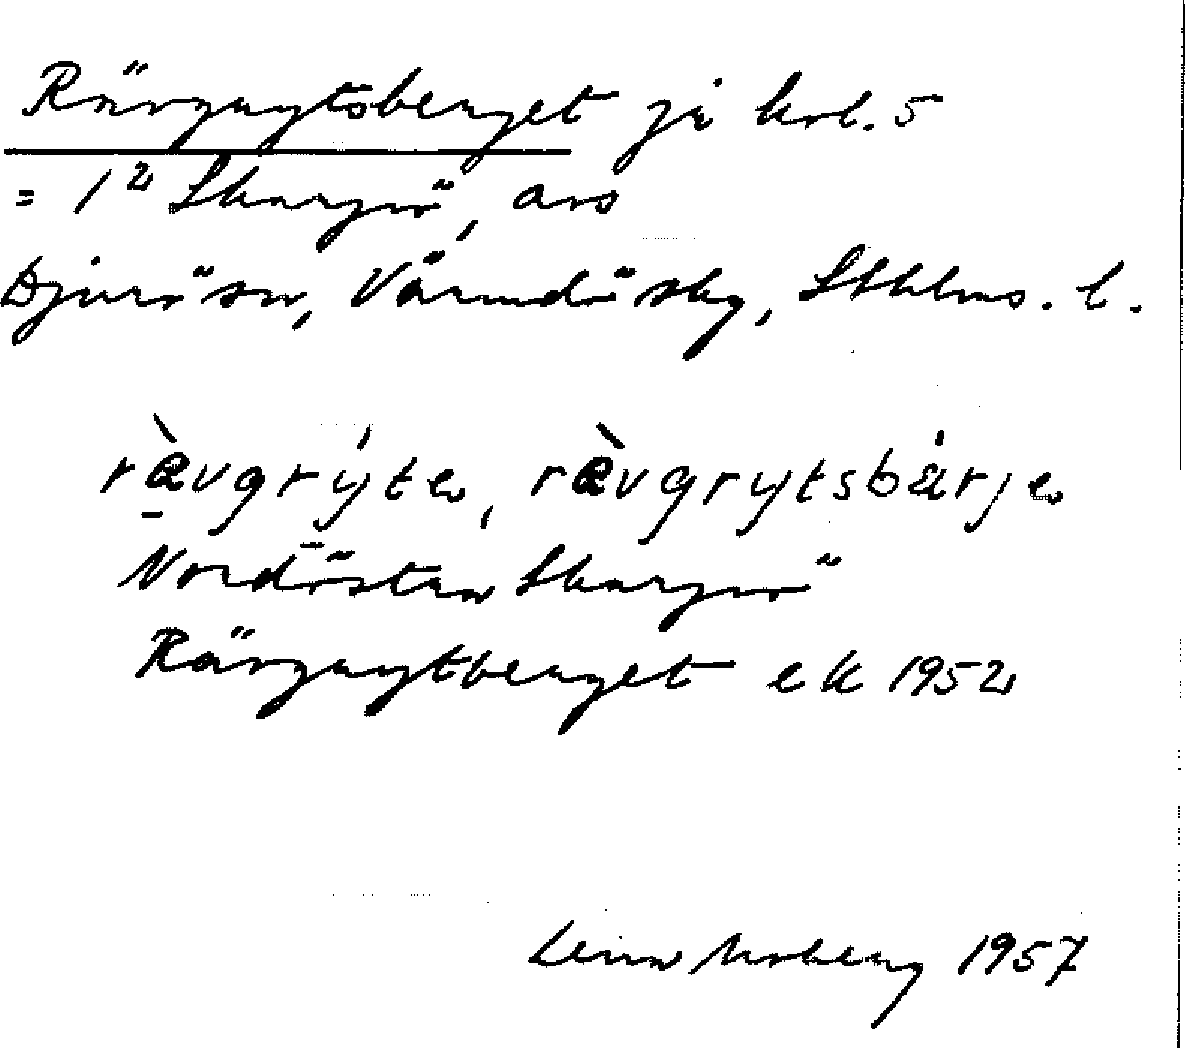 Rävgrytsberget på kbl. 5
= 1² Skarpö, avs
Djurö sn, Värmdö skg, Sthlms. l.
rävgrýte, rävgrytsbàrje
Nordöstan Skarpö
Rävgrytberget ek 1952
Lena Moberg 1957